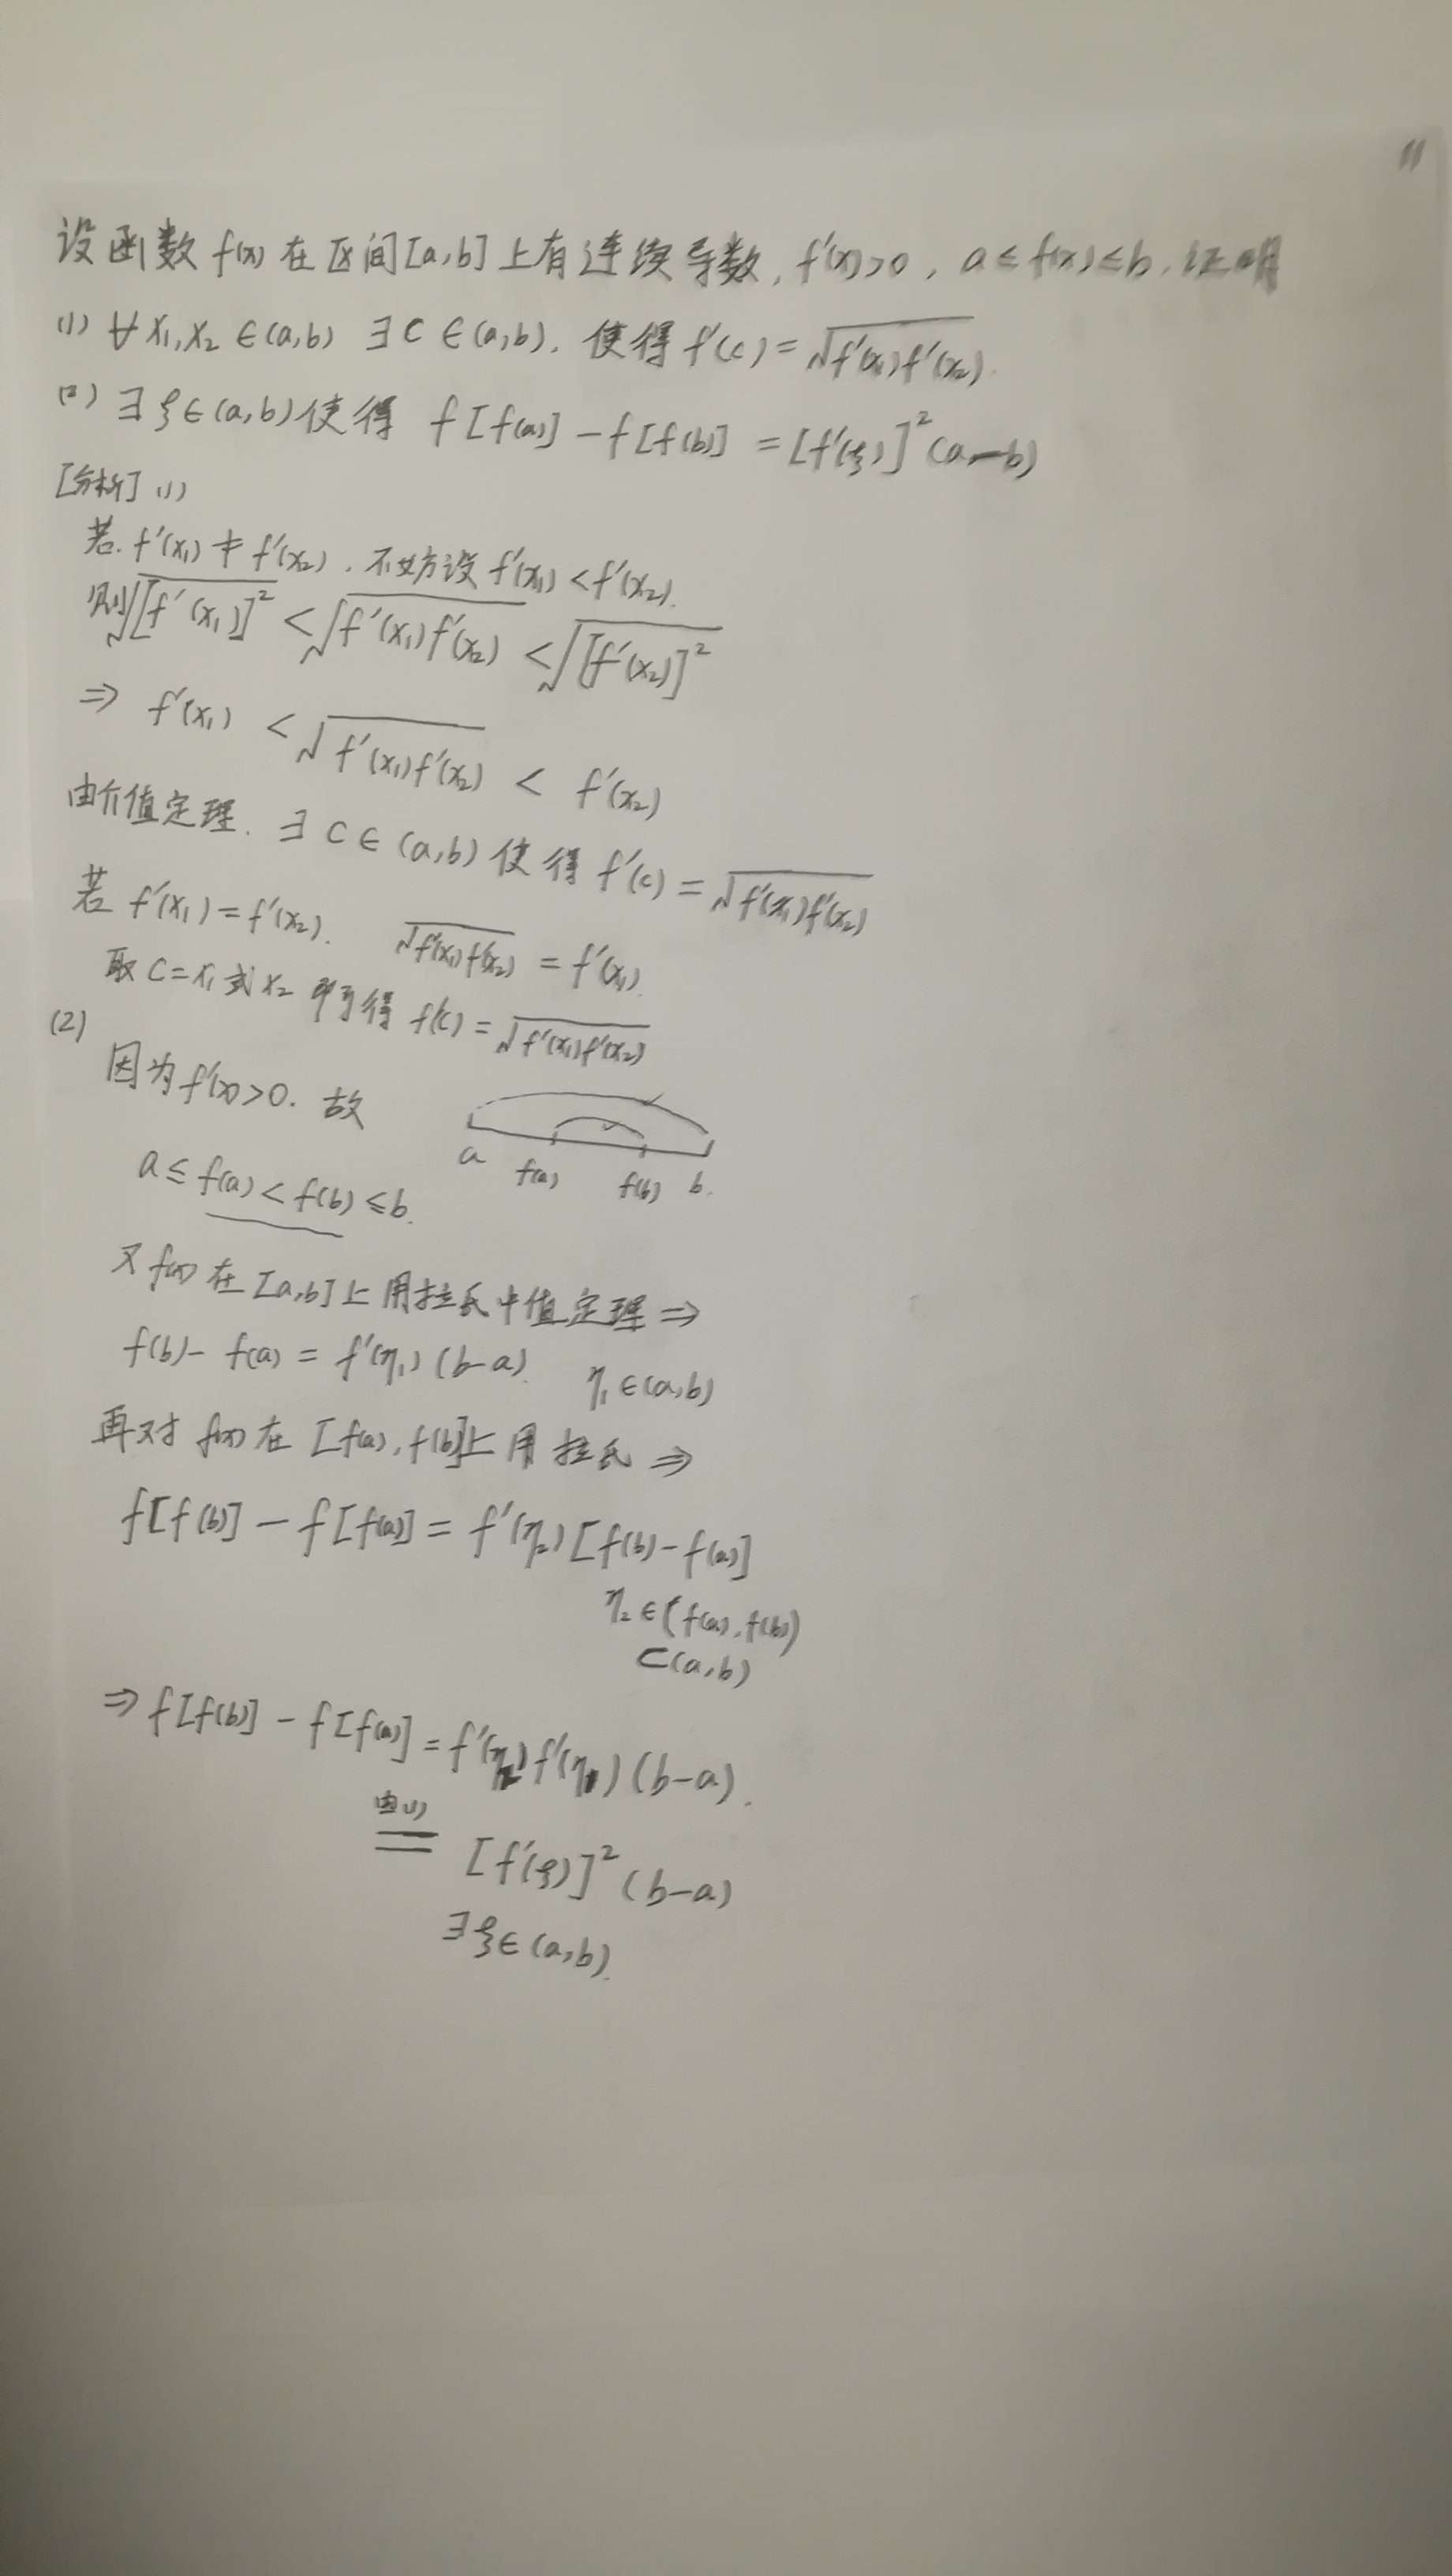 11
设函数 f(x) 在区间[a,b]上有连续导数, f'(x)>0, a≤f(x)≤b, 证明
(1) ∀ x₁,x₂ ∈(a,b) ∃ c ∈(a,b), 使得 f'(c)=√f'(x₁)f'(x₂).
(2) ∃ ξ∈(a,b)使得 f[f(a)] - f[f(b)] = [f'(ξ)]²(a-b)
[分析] (1)
若 f'(x₁) ≠ f'(x₂), 不妨设 f'(x₁)<f'(x₂).
则√[f'(x₁)]² < √f'(x₁)f'(x₂) < √[f'(x₂)]²
⇒ f'(x₁) < √f'(x₁)f'(x₂) < f'(x₂)
由介值定理, ∃ c ∈ (a,b) 使得 f'(c) = √f'(x₁)f'(x₂)
若 f'(x₁)=f'(x₂). √f'(x₁)f'(x₂) = f'(x₁).
取 c=x₁ 或 x₂ 即可得 f'(c) = √f'(x₁)f'(x₂)
(2)
因为 f'(x)>0. 故
a f(a) f(b) b.
a ≤ f(a) < f(b) ≤ b.
又 f(x) 在 [a,b]上用拉氏中值定理 ⇒
f(b) - f(a) = f'(η₁) (b-a). η₁ ∈(a,b)
再对 f(x) 在 [f(a), f(b)]上用拉氏 ⇒
f[f(b)] - f[f(a)] = f'(η₂) [f(b) - f(a)]
η₂ ∈ (f(a), f(b))
⊂(a,b)
⇒ f[f(b)] - f[f(a)] = f'(η₂) f'(η₁) (b-a).
由(1)
= [f'(ξ)]² (b-a)
∃ ξ ∈ (a,b).